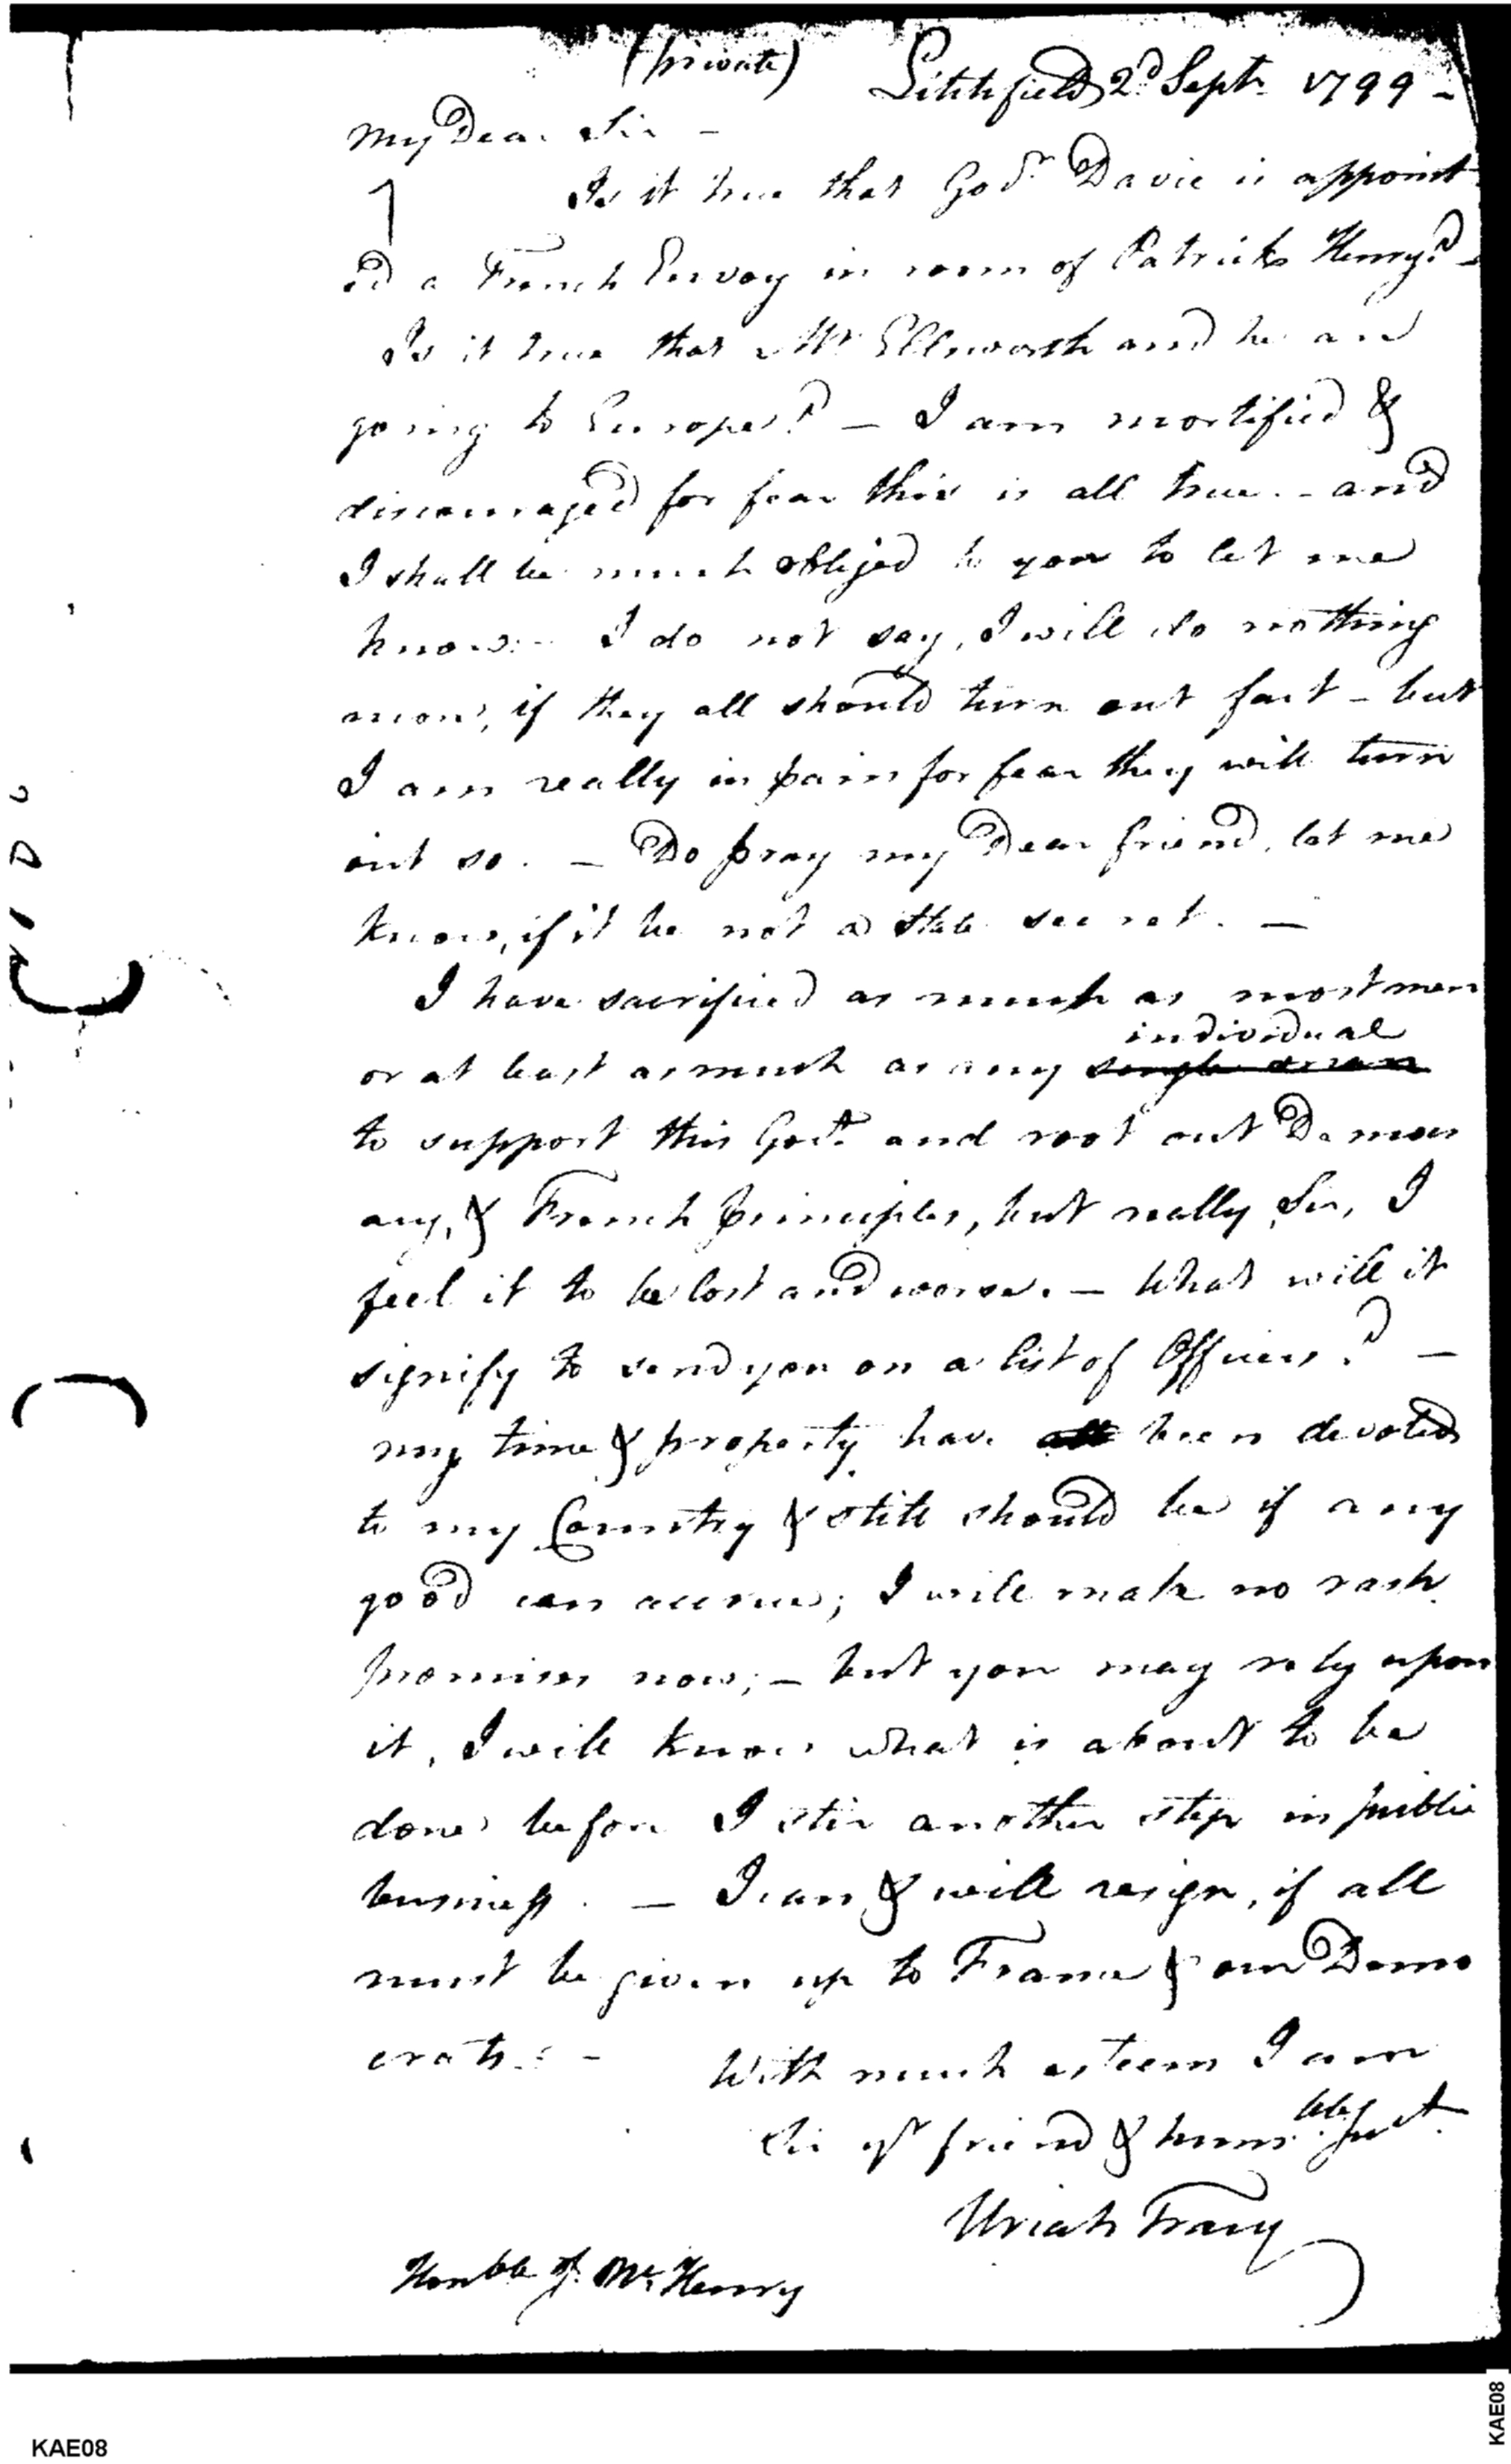 (private) Litchfield 2d Sept. 1799 -
My Dear Sir -
Is it true that Govr. Davie is appoint
ed a French Envoy in room of Patrick Henry? -
Is it true that Mr Ellsworth and he are
going to Europe? - I am mortified &
discouraged for fear this is all true. - and
I shall be much obliged to you to let me
know. - I do not say, I will do nothing
more, if they all should turn out fact - but
I am really in pain for fear they will turn
out so. - Do pray my Dear friend, let me
know, if it be not a state secret. -
I have sacrificed as much as most men
individual
or at least as much as any single man
to support this Govt. and root out Democr
acy, & French principles, but really Sir, I
feel it to be lost and worse. - What will it
signify to send you on a list of Officers? -
my time & property have all been devoted
to my Country & still should be if any
good can accrue; I will make no rash
promises now; - but you may rely upon
it, I will know what is about to be
done before I stir another step in public
business. - I can & will resign, if all
must be given up to France & our Demo
crats. - With much esteem I am
Sir yr friend & humbble Servt.
Uriah Tracy
Honble J. McHenry
KAE08
KAE08